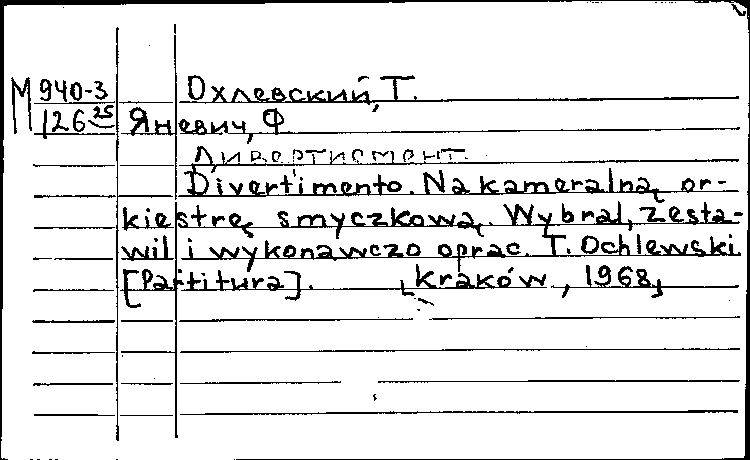 М 940-3 Охлевский, Т.
126 25 Яневич, Ф.
Дивертисмент.
Divertimento. Na kameralną or-
kiestrę smyczkową. Wybral, zesta-
wil i wykonawczo oprac. T. Ochlewski.
[Partitura]. Kraków, 1968,